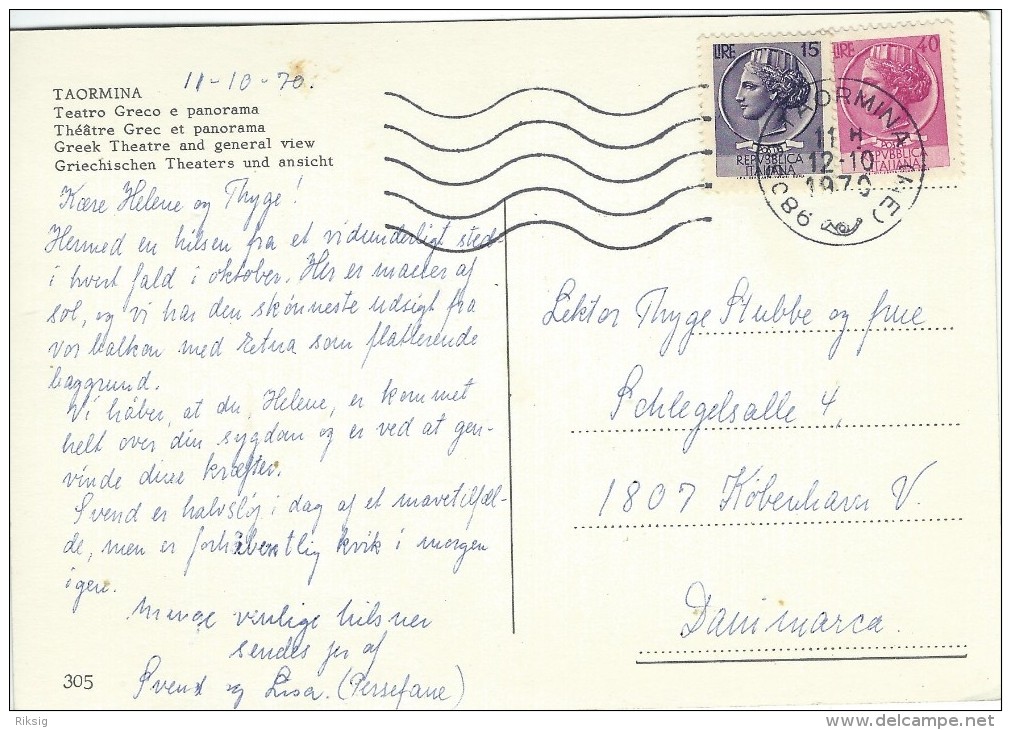 11-10-70.
TAORMINA
Teatro Greco e panorama
Théâtre Grec et panorama
Greek Theatre and general view
Griechischen Theaters und ansicht
Kære Helene og Thyge!
Hermed en hilsen fra et vidunderligt sted-
i hvert fald i oktober. Her er masser af
sol, og vi har den skønneste udsigt fra
vor balkon med Aetna som flatterende
baggrund.
Vi håber, at du, Helene, er kommet
helt over din sygdom og er ved at gen-
vinde dine kræfter.
Svend er halvsløj i dag af et mavetilfæl-
de, men er forhåbentlig kvik i morgen
igen.
Mange venlige hilsner
sendes jer af
Svend og Lisa. (Persefone)
305
LIRE 15
REPVBBLICA
ITALIANA
LIRE 40
REPVBBLICA
ITALIANA
TAORMINA (ME)
11 H
12-10
1970
C86
Lektor Thyge Stubbe og frue
Schlegelsalle 4,
1807 København V.
Danimarca.
Riksig
delcampe.net